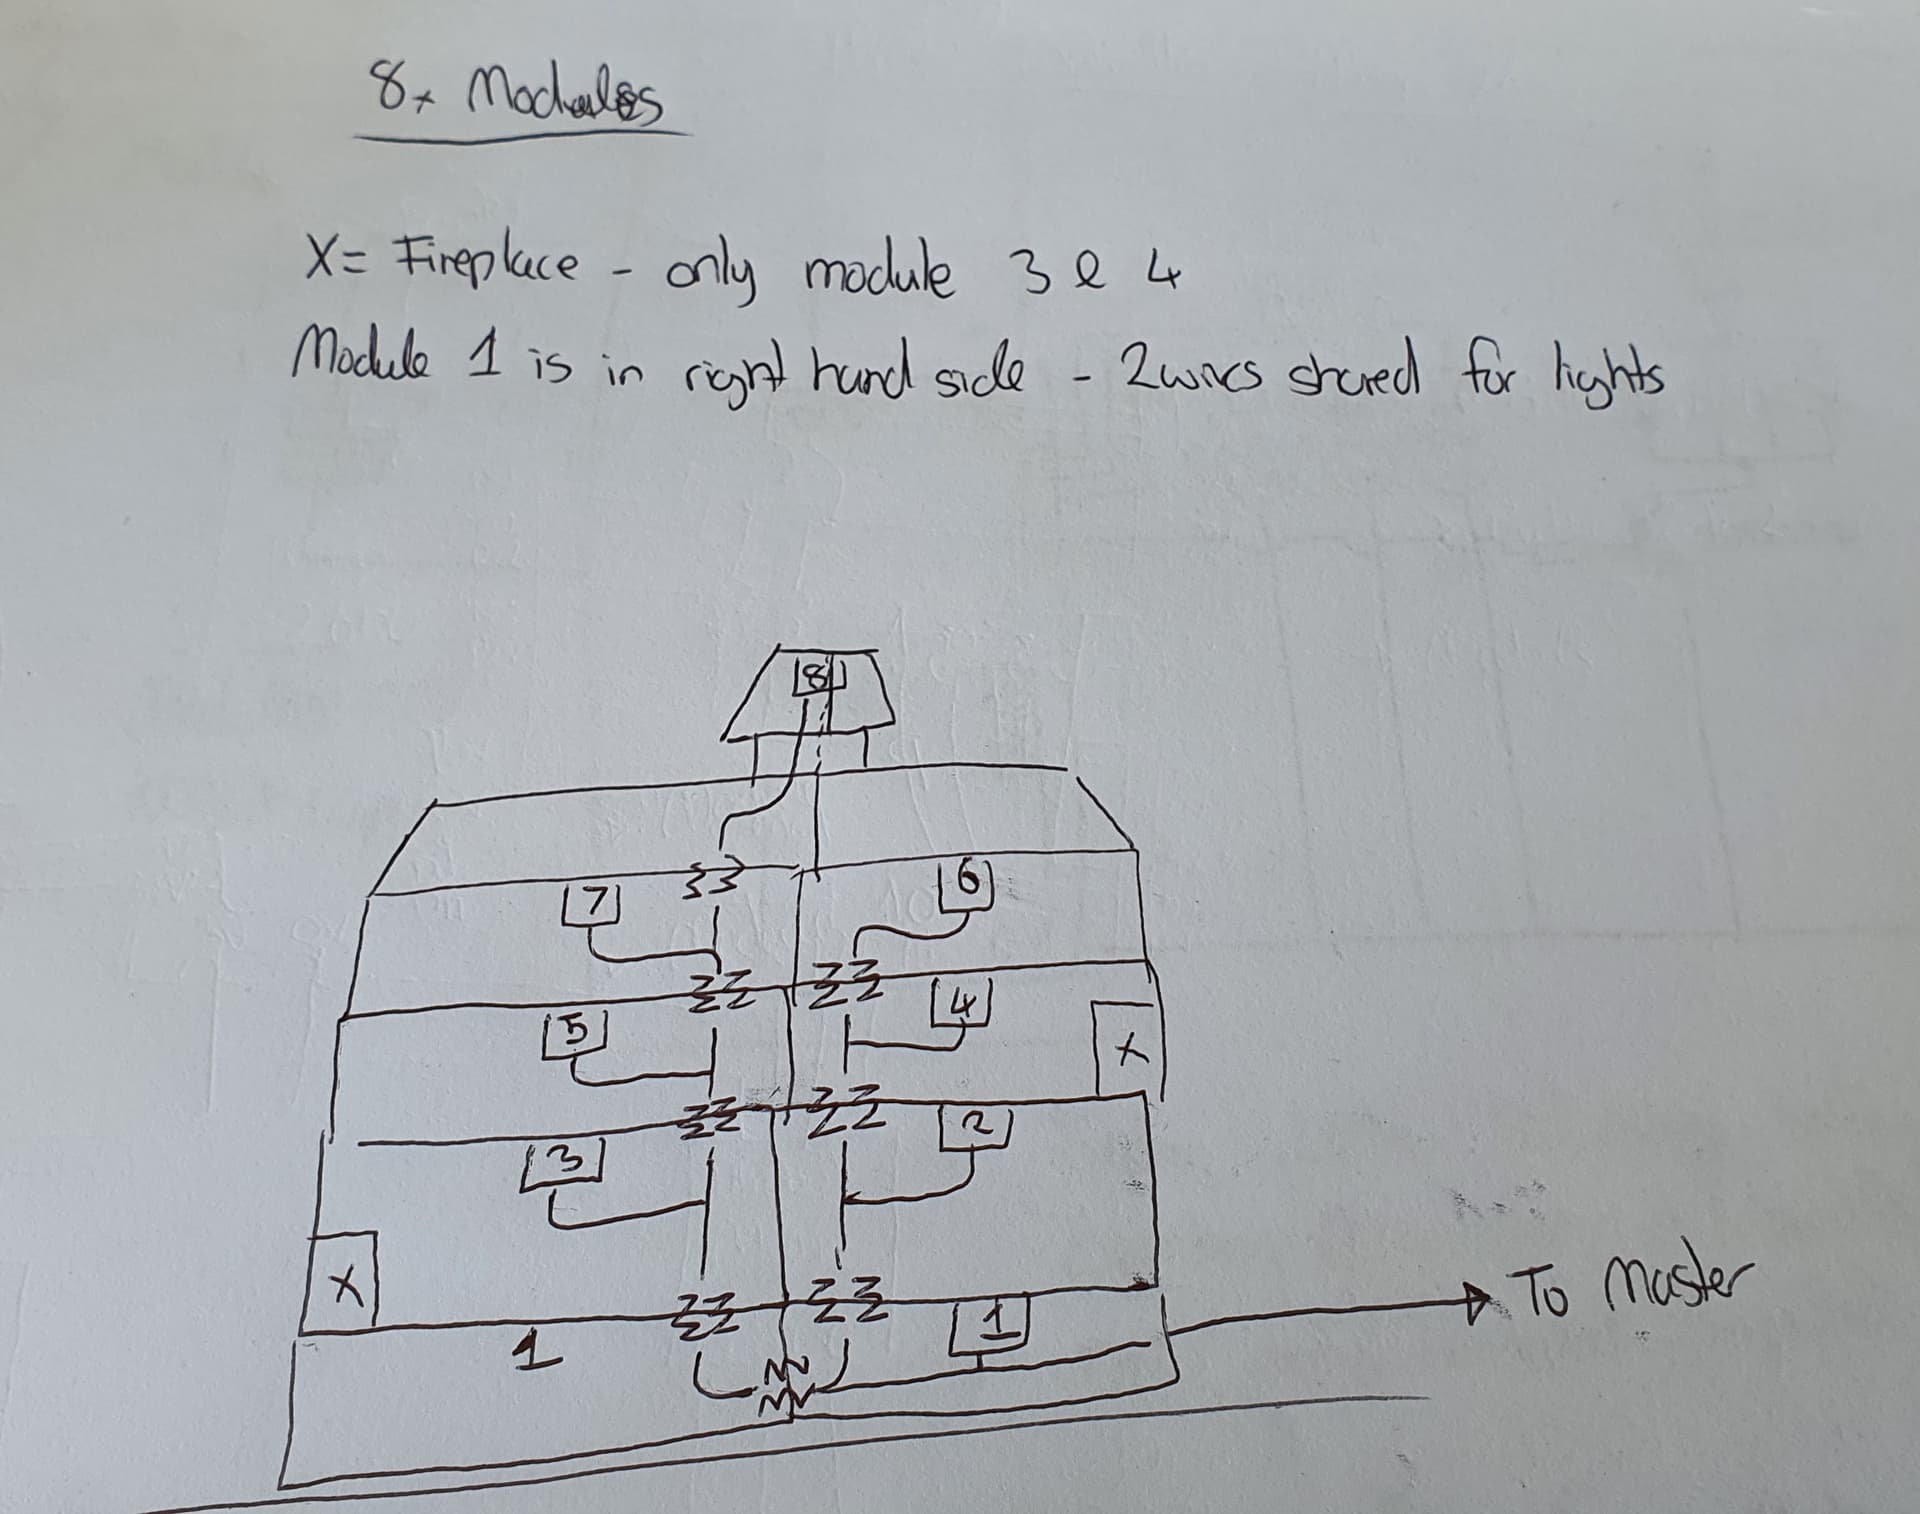 8x Modules
X= Fireplace - only module 3 & 4
Module 1 is in right hand side - 2 wires shared for lights
8
7 6
5 4
X
3 2
X
1 1
To Master